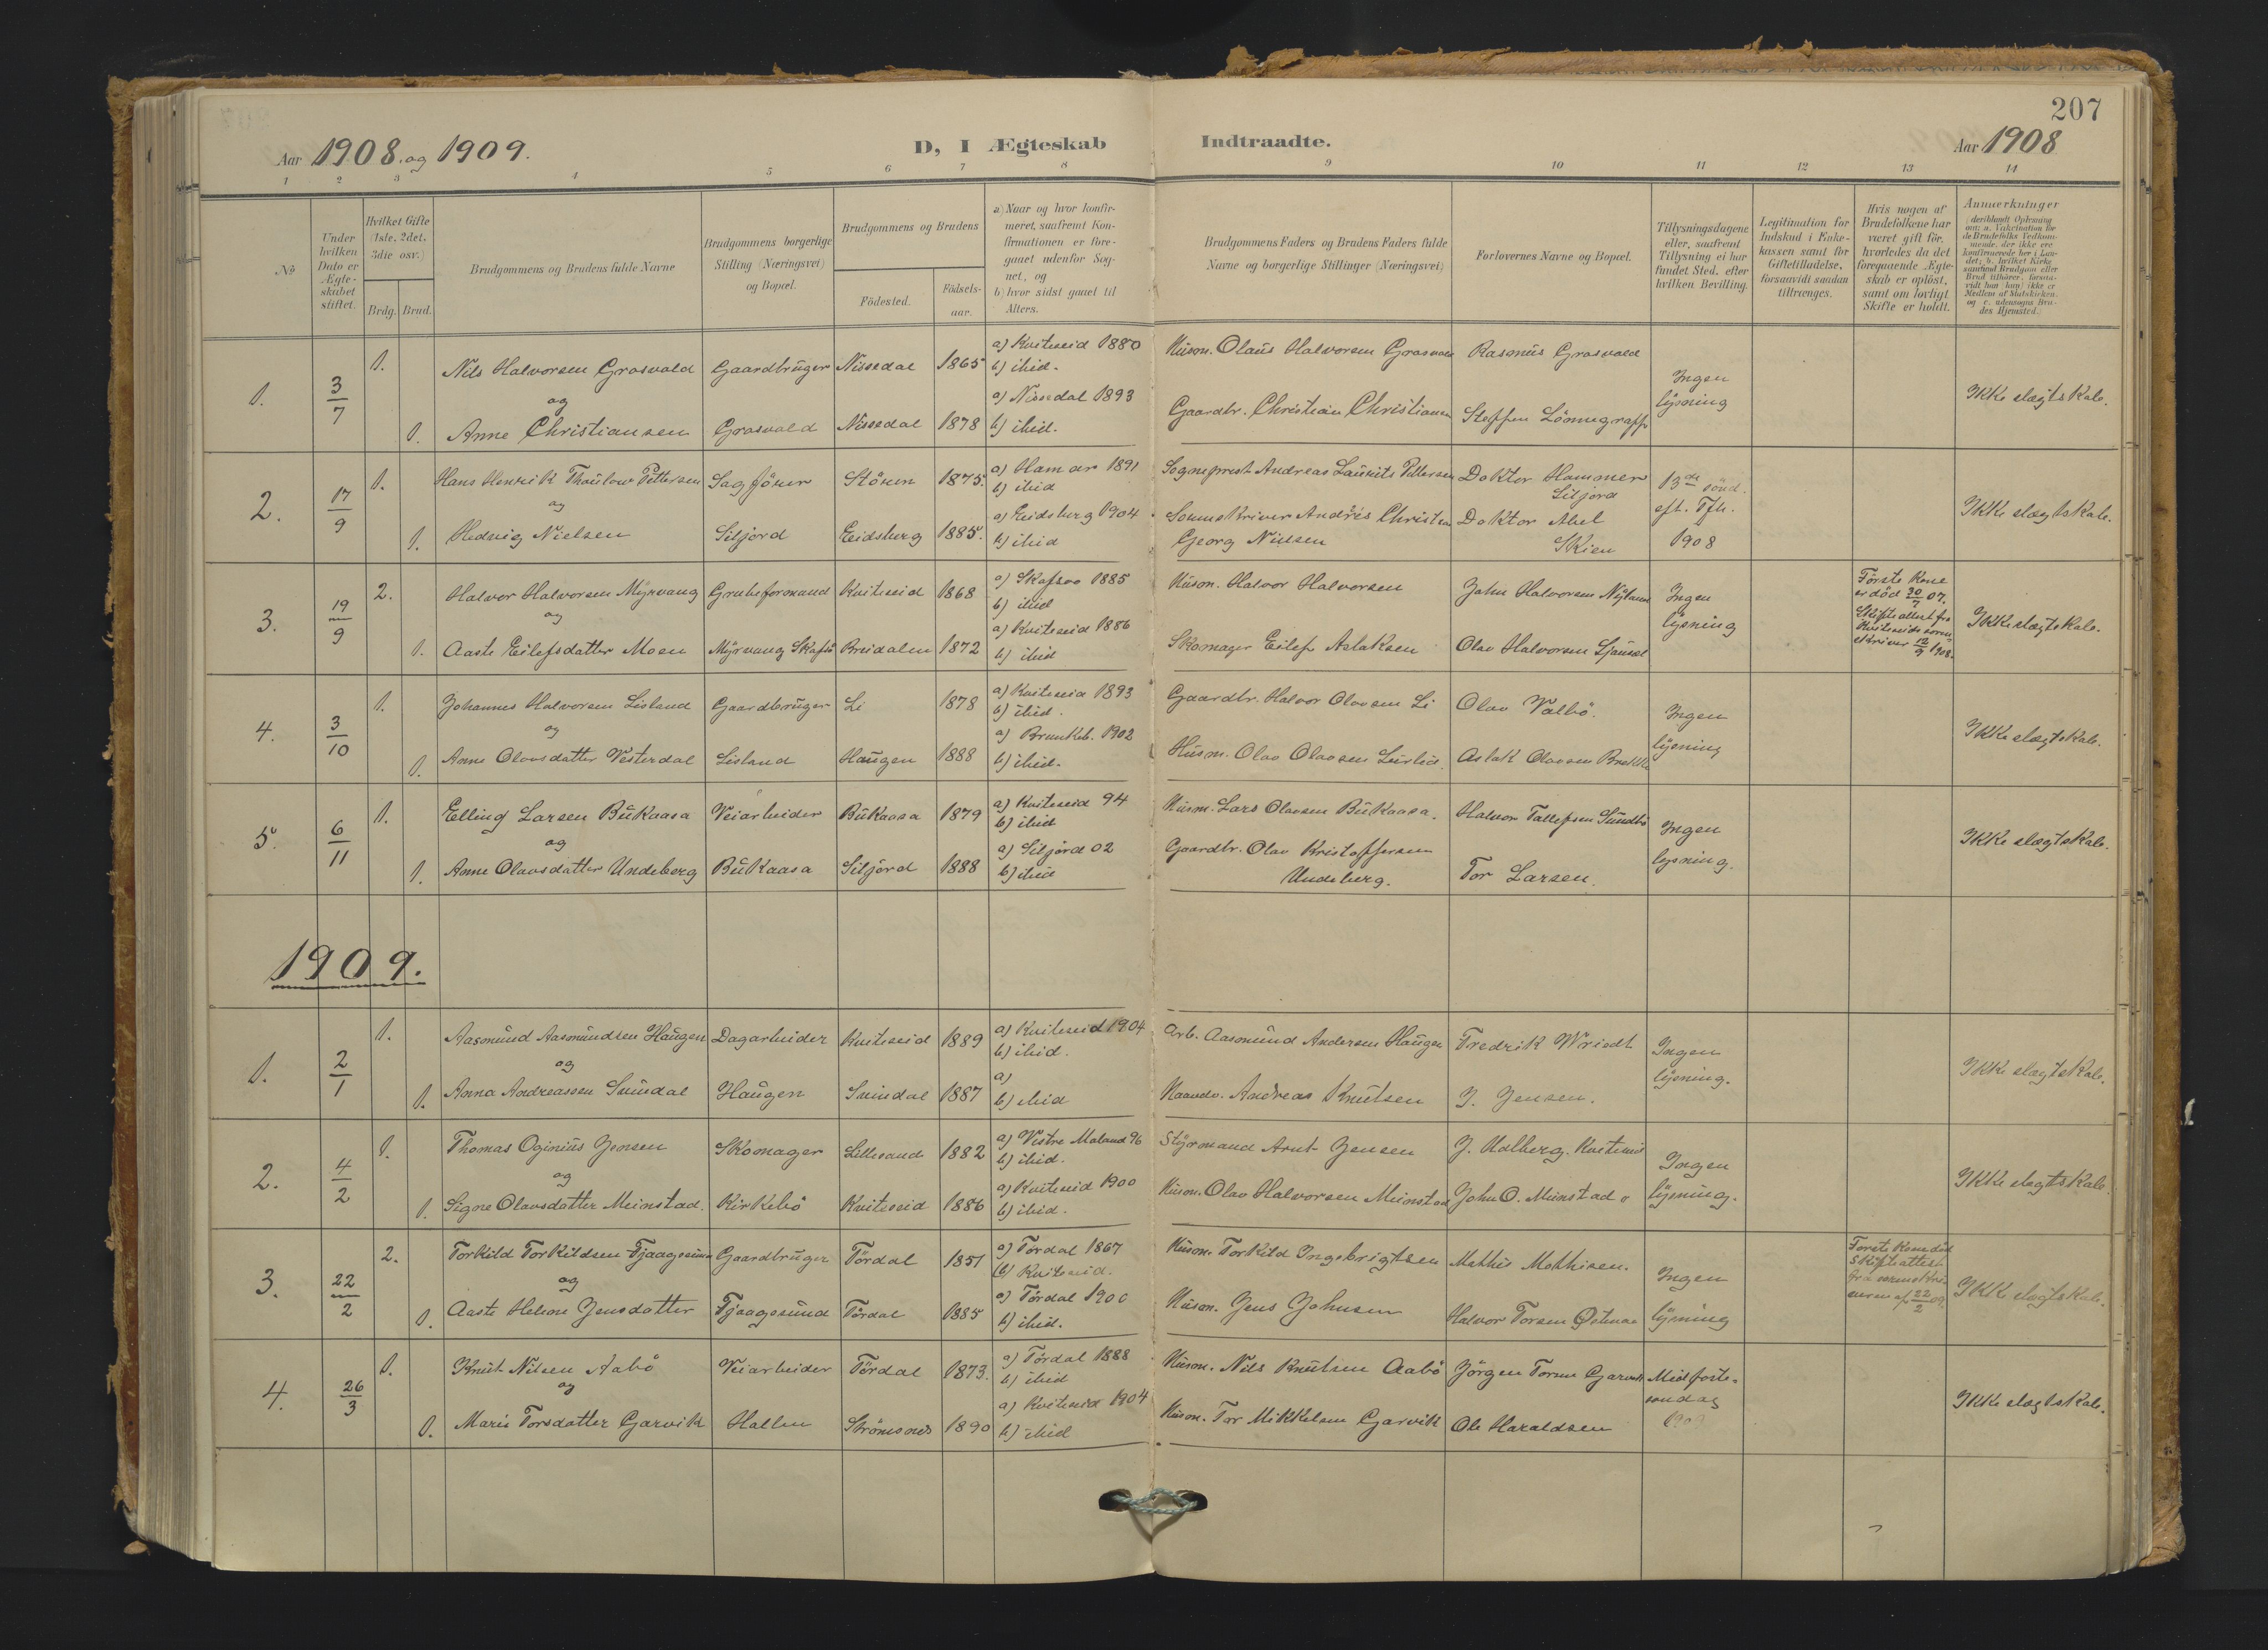 207
Aar 1908. og 1909.
D, I Ægteskab Indtraadte.
Aar 1908
1 2 3 4 5 6 7 8 9 10 11 12 13 14
No
Under hvilken Dato er Ægte-skabet stiftet.
Hvilket Gifte (1ste, 2det, 3die osv.)
Brdg. Brud.
Brudgommens og Brudens fulde Navne
Brudgommens borgerlige Stilling (Næringsvei) og Bopæl.
Brudgommens og Brudens
Födested.
Födsels-aar.
a) Naar og hvor konfir-
meret, saafremt Kon-
firmationen er fore-
gaaet udenfor Sog-
net, og
b) hvor sidst gaaet til
Alters.
Brudgommens Faders og Brudens Faders fulde
Navne og borgerlige Stillinger (Næringsvei)
Forlovernes Navne og Bopæl.
Tillysningsdagene
eller, saafremt
Tillysning ei har
fundet Sted, efter
hvilken Bevilling.
Legitimation for
Indskud i Enke-
kassen samt for
Giftetilladelse,
forsaavidt saadan
tiltrænges.
Hvis nogen af
Brudefolkene har
været gift för,
hvorledes da det
foregaaende Ægte-
skab er oplöst,
samt om lovligt
Skifte er holdt.
Anmærkninger
(deriblandt Oplysning
om: a. Vakcination for
de Brudefolks Vedkom-
mende, der ikke ere
konfirmerede her i Lan-
det; b. hvilket Kirke-
samfund Brudgom eller
Brud tilhører, forsaa-
vidt han (hun) ikke er
Medlem af Statskirken,
og c. udensogns Bru-
des Hjemsted.
1. 3/7 1. Nils Halvorsen Grasvald Gaardbruger Nissedal 1865 a) Kviteseid 1880 b) ibid. Husm. Olaus Halvorsen Grasvald Rasmus Grasvald
og Ingen lysning Ikke slægtskab.
1. Anne Christiansen Grasvald Nissedal 1878 a) Nissedal 1893 b) ibid. Gaardbr. Christian Christiansen Steffen Lönnegraff
2. 17/9 1. Hans Henrik Thaulow Pettersen Sagförer Stören 1875. a) Hamar 1891 b) ibid Sogneprest Andreas Laurits Pettersen Doktor Hammer Siljord
og 13de sönd. eft. Tfh. 1908 Ikke slægtskab.
1. Hedvig Nielsen Siljord Eidsberg 1885. a) Eidsberg 1904 b) ibid Sorenskriver Andres Christian Georg Nielsen Doktor Abel Skien
3. 19/9 2. Halvor Halvorsen Myrvang Grubeformand Kviteseid 1868 a) Skafsaa 1885 b) ibid Husm. Halvor Halvorsen John Halvorsen Nyland
og Ingen lysning Förste Kone er död 30/7 07. Skifteattest fra Kviteseids soren-skriver 12/9 1908. Ikke slægtskab.
1. Aaste Eilefsdatter Moen Myrvang Skafså Breidalen 1872 a) Kviteseid 1886 b) ibid Skomager Eilef Aslaksen Olav Halvorsen
4. 3/10 1. Johannes Halvorsen Lisland Gaardbruger Li 1878 a) Kviteseid 1893 b) ibid. Gaardbr. Halvor Olavsen Li Olav Valbö.
og Ingen lysning Ikke slægtskab.
1. Anne Olavsdatter Vesterdal Lisland Haugen 1888 a) Brunkeb. 1902 b) ibid. Husm. Olav Olavsen Aslak Olavsen
5. 6/11 1. Elling Larsen Bukaasa Veiarbeider Bukaasa 1879 a) Kviteseid 94 b) ibid Husm. Lars Olavsen Bukaasa. Halvor Tallefsen Sundbö
og Ingen lysning. Ikke slægtskab.
1. Anne Olavsdatter Undeberg Bukaasa Siljord 1888 a) Siljord 02 b) ibid Gaardbr. Olav Kristoffersen Undeberg. Tor Larsen.
1909.
1. 2/1 1. Aasmund Aasmundsen Haugen Dagarbeider Kviteseid 1889 a) Kviteseid 1904 b) ibid. Arb. Aasmund Andersen Haugen Fredrik Wriedt
og Ingen lysning. Ikke slægtskab.
1. Anna Andreassen Suindal Haugen Suindal 1887 a) b) ibid Andreas Knutsen J. Jensen.
2. 4/2 1. Thomas Oginius Jensen Skomager Lillesand 1882 a) Vestre Moland 96 b) ibid. Styrmand Arnt Jensen J. Udlberg. Kviteseid
og Ingen lysning. Ikke slægtskab.
1. Signe Olavsdatter Meinstad. Kirkebö Kviteseid 1886 a) Kviteseid 1900 b) ibid. Husm. Olav Halvorsen Meinstad John O. Meinstad
3. 22/2 2. Torkild Torkildsen Fjaagesund Gaardbruger Tördal 1851 a) Tördal 1867 b) Kviteseid. Husm. Torkild Ingebrigtsen Mathis Mathisen.
og Ingen lysning Forste Kone död Skifteattest fra sorenskri-veren af 22/2 09. Ikke slægtskab.
1. Aaste Helene Jensdatter Fjaagesund Tördal 1885 a) Tördal 1900 b) ibid. Husm. Jens Johnsen Halvor Torsen
4. 26/3 1. Knut Nilsen Aabö Veiarbeider Tördal 1873. a) Tördal 1888 b) ibid Husm. Nils Knutsen Aabö Jörgen Torsen Garvik
og Midfaste-sondag 1909 Ikke slægtskab.
1. Marie Torsdatter Garvik Hallen Strömsnes 1890 a) Kviteseid 1904 b) ibid Husm. Tor Mikkelsen Garvik Ole Haraldsen